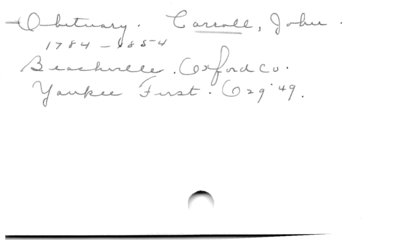 Obituary. Carroll, John.
1784 - 1854
Beachville. Oxford Co.
Yankee First. O29 '49.